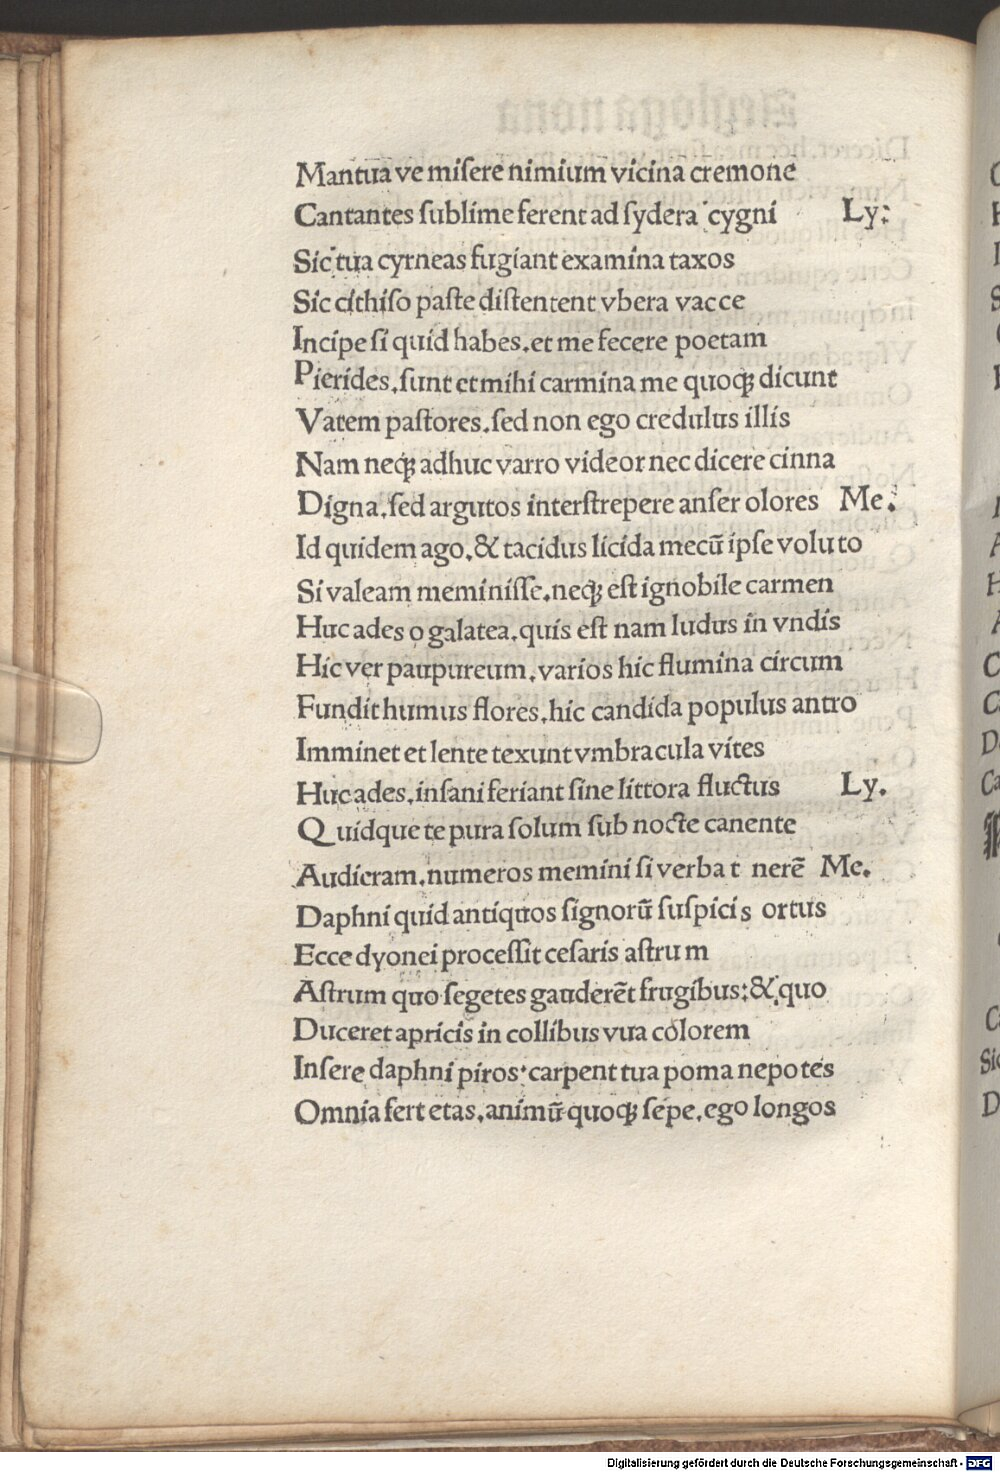 Mantua ve miſere nimium vicina cremone
Cantantes ſublime ferent ad ſydera cygni Ly:
Sic tua cyrneas fugiant examina taxos
Sic cithiſo paſte diſtentent vbera vacce
Incipe ſi quid habes. et me fecere poetam
Pierides. ſunt et mihi carmina me quoqꝫ dicunt
Vatem paſtores. ſed non ego credulus illis
Nam neqꝫ adhuc varro videor nec dicere cinna
Digna. ſed argutos interſtrepere anſer olores Me.
Id quidem ago. & tacidus licida mecū ipſe voluto
Si valeam meminiſſe. neqꝫ eſt ignobile carmen
Huc ades o galatea. quis eſt nam ludus in vndis
Hic ver paupureum. varios hic flumina circum
Fundit humus flores. hic candida populus antro
Imminet et lente texunt vmbracula vites
Huc ades. inſani feriant ſine littora fluctus Ly.
Quidque te pura ſolum ſub nocte canente
Audieram. numeros memini ſi verba t nerē Me.
Daphni quid antiquos ſignorū ſuſpicis ortus
Ecce dyonei proceſſit ceſaris aſtrum
Aſtrum quo ſegetes gauderēt frugibus: & quo
Duceret apricis in collibus vua colorem
Inſere daphni piros: carpent tua poma nepotes
Omnia fert etas. animū quoqꝫ ſepe. ego longos
Digitalisierung gefördert durch die Deutsche Forschungsgemeinschaft - DFG